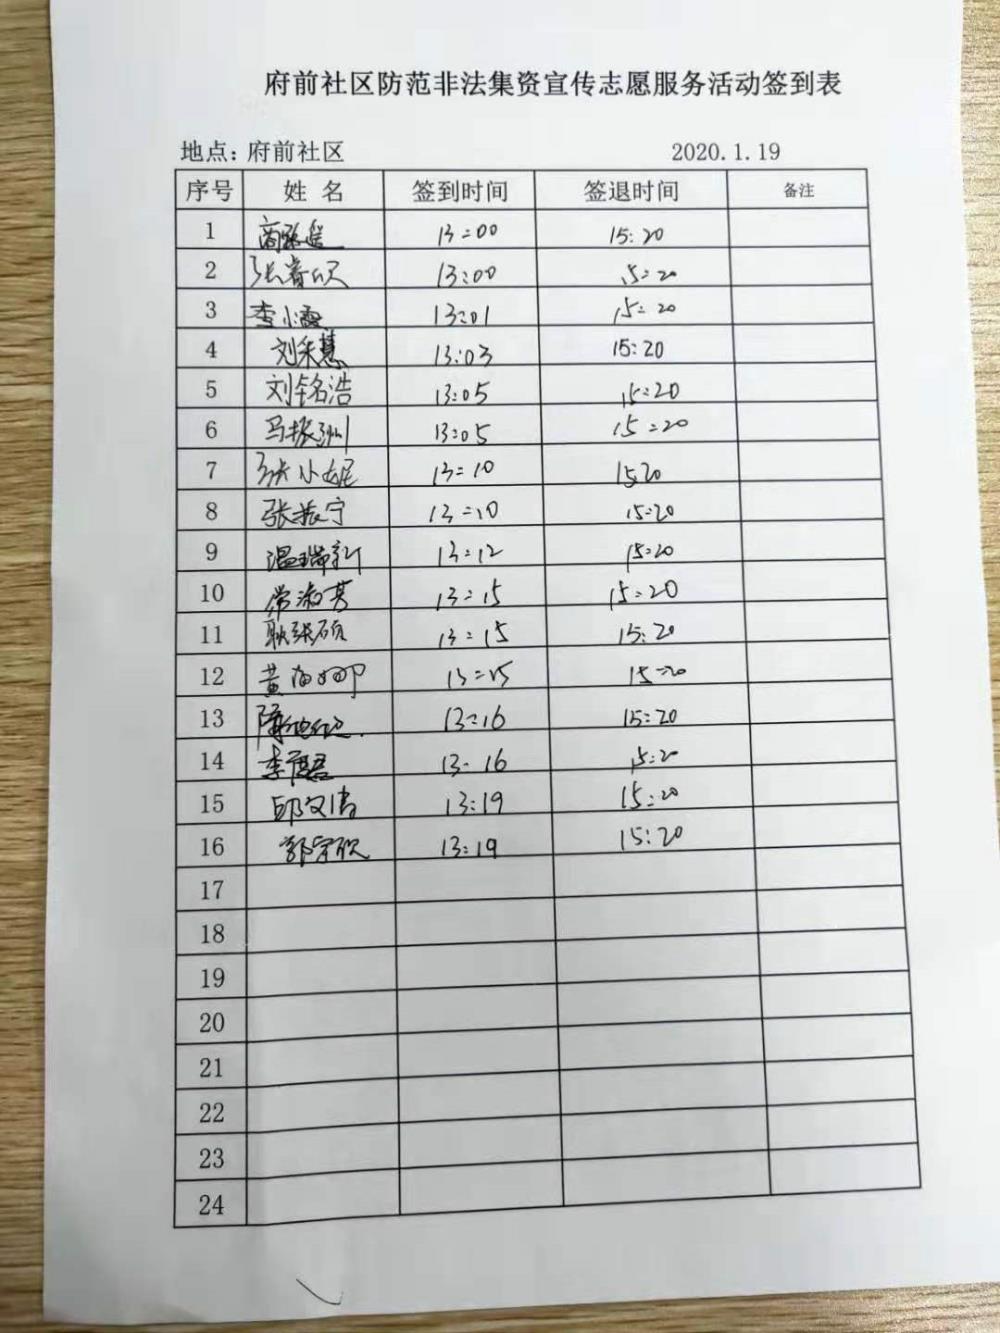 府前社区防范非法集资宣传志愿服务活动签到表
地点：府前社区 2020.1.19
序号 姓 名 签到时间 签退时间 备注
1 13:00 15:20
2 张睿欣 13:00 15:20
3 李小霞 13:01 15:20
4 刘采慧 13:03 15:20
5 刘铭浩 13:05 15:20
6 马振洲 13:05 15:20
7 张小妮 13:10 15:20
8 张振宁 13:10 15:20
9 温瑞新 13:12 15:20
10 常淑芳 13:15 15:20
11 耿张硕 13:15 15:20
12 黄海娜 13:15 15:20
13 13:16 15:20
14 李 13:16 15:20
15 邱文倩 13:19 15:20
16 郭宗欣 13:19 15:20
17
18
19
20
21
22
23
24